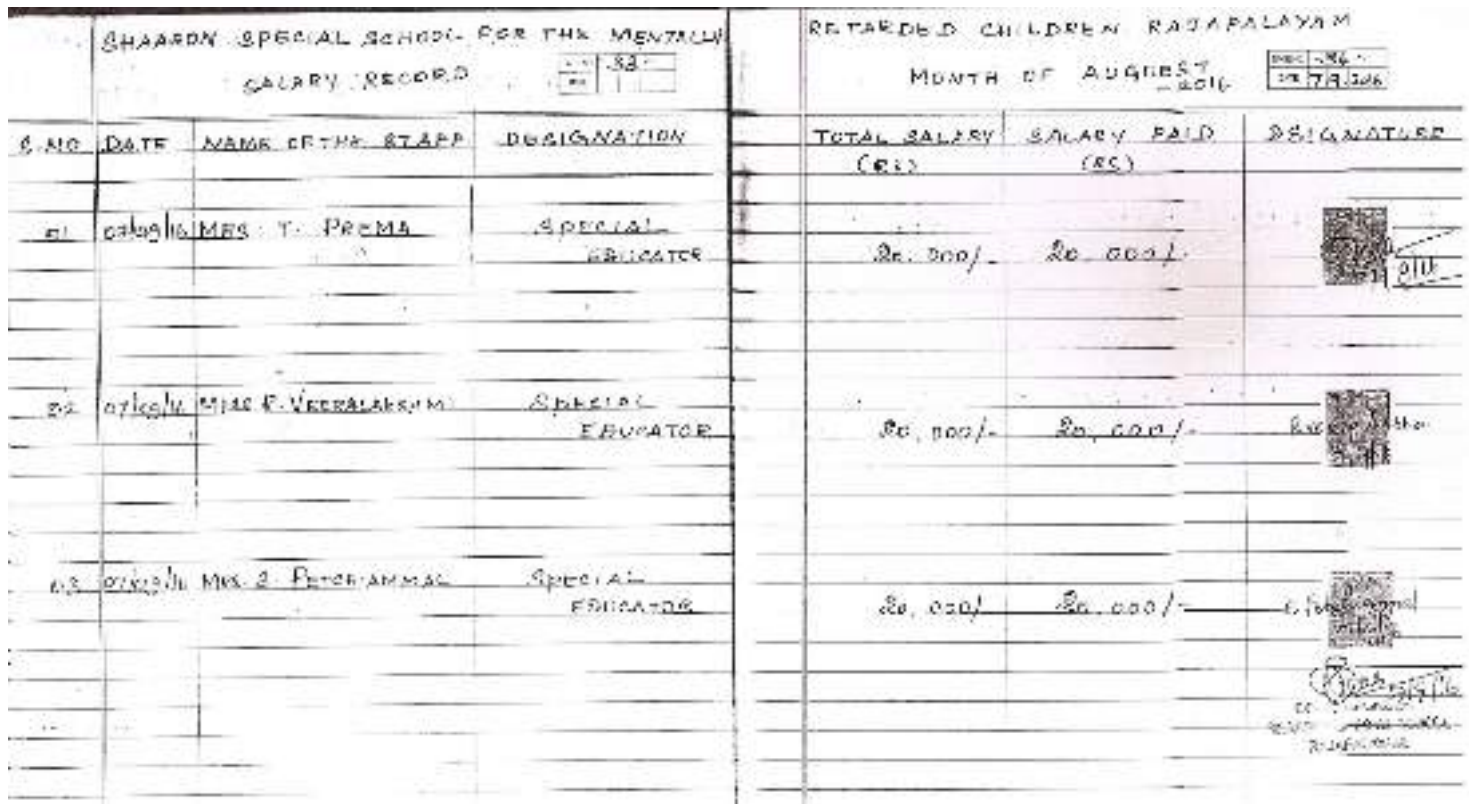 SHAARON SPECIAL SCHOOL FOR THE MENTALLY RETARDED CHILDREN RAJAPALAYAM
SALARY RECORD 33 MONTH OF AUGUEST 2016 34
7 9 2016
S.NO DATE NAME OF THE STAFF DESIGNATION TOTAL SALARY SALARY PAID DSIGNATURE
(RS) (RS)
01 07/09/16 MRS. T. PREMA SPECIAL
EDUCATOR 20,000/- 20,000/-
02 07/09/16 MRS R. VEERALAKSHMI SPECIAL
EDUCATOR 20,000/- 20,000/-
03 07/09/16 MRS. S. PETCHIAMMAL SPECIAL
EDUCATOR 20,000/- 20,000/-